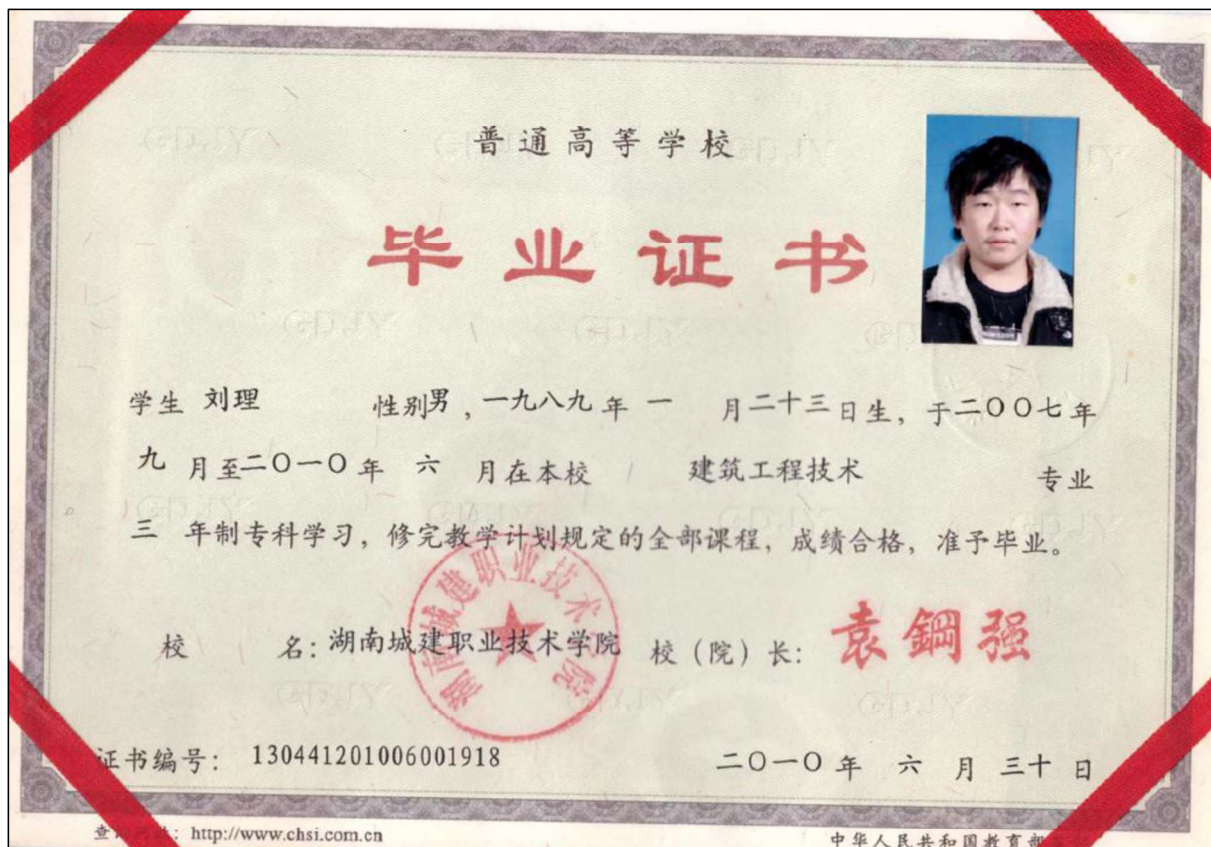 普通高等学校
毕业证书
学生 刘理 性别男,一九八九年 一 月二十三日生,于二〇〇七年
九 月至二〇一〇年 六 月在本校 建筑工程技术 专业
三 年制专科学习,修完教学计划规定的全部课程,成绩合格,准予毕业。
湖南城建职业技术学院
校 名:湖南城建职业技术学院 校(院)长:袁鋼强
证书编号:130441201006001918 二〇一〇年 六 月 三十 日
查 : http://www.chsi.com.cn 中华人民共和国教育部